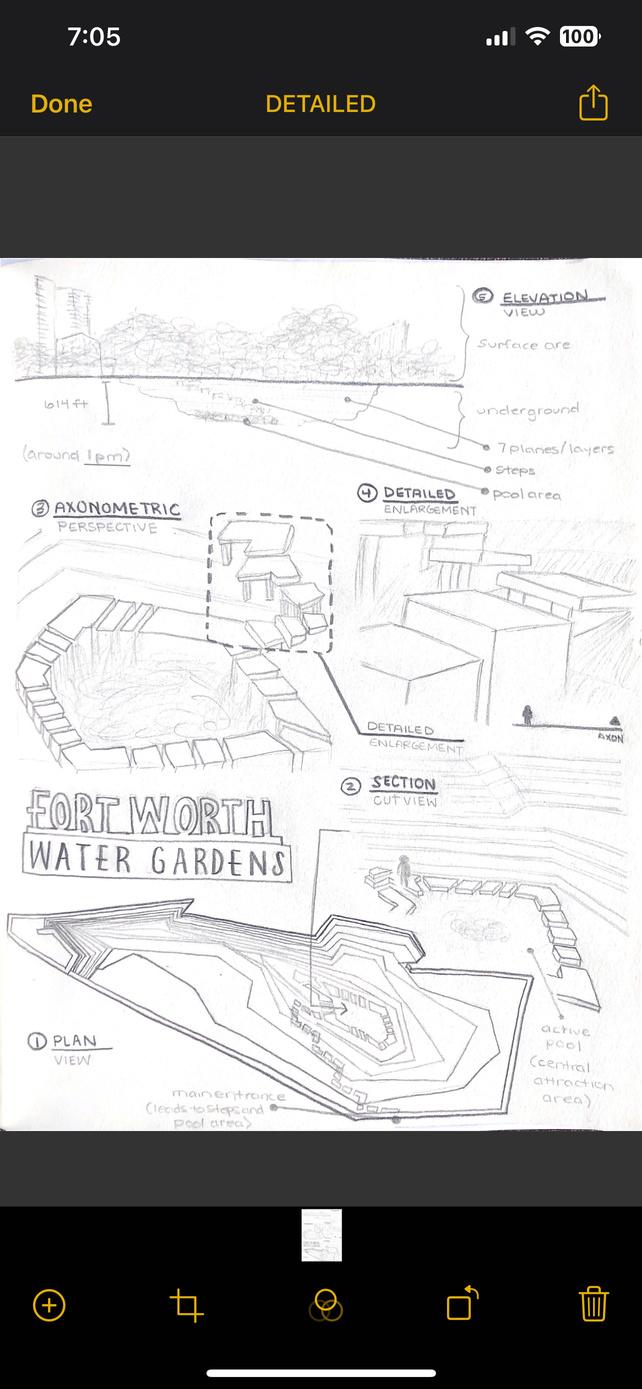 7:05
100
Done
DETAILED
5 ELEVATION
VIEW
Surface are
614 ft
underground
(around 1pm)
7 planes/layers
Steps
pool area
3 AXONOMETRIC
PERSPECTIVE
4 DETAILED
ENLARGEMENT
DETAILED
ENLARGEMENT
AXON
2 SECTION
CUT VIEW
FORT WORTH
WATER GARDENS
1 PLAN
VIEW
active
pool
(central
attraction
area)
main entrance
(leads to steps and
pool area)